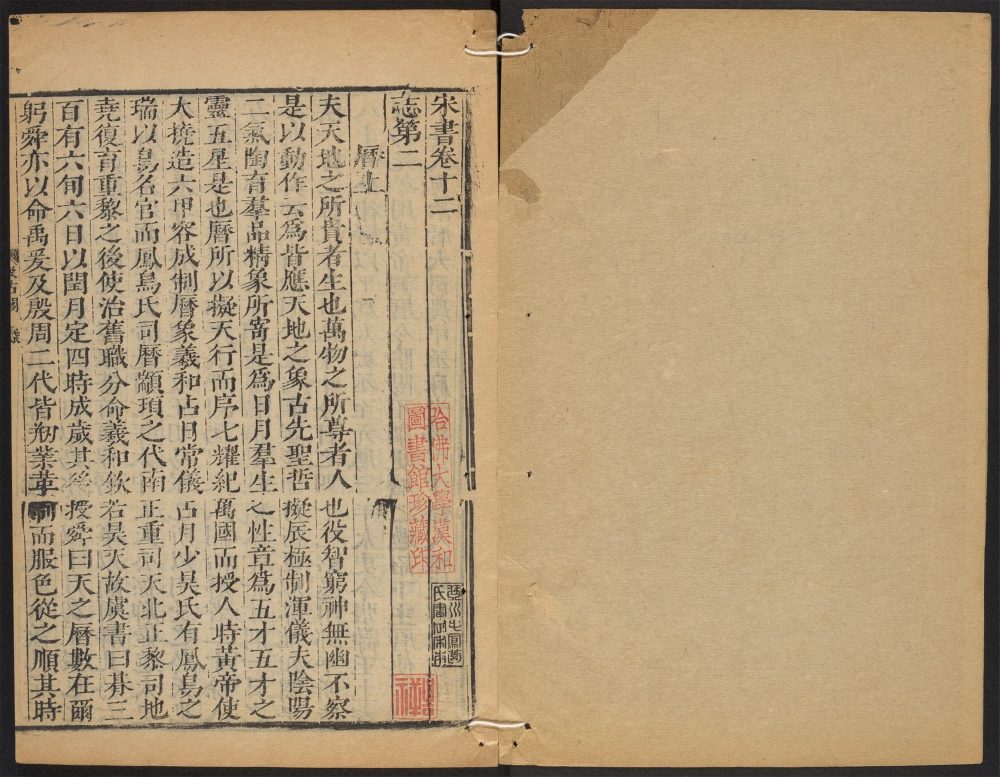 宋書卷十二
志第二
曆上
夫天地之所貴者生也萬物之所尊者人也役智窮神無幽不察
是以動作云爲皆應天地之象古先聖哲擬辰極制渾儀夫陰陽
二氣陶育羣品精象所寄是爲日月羣生之性章爲五才五才之
靈五星是也曆所以擬天行而序七耀紀萬國而授人時黃帝使
大撓造六甲容成制曆象羲和占日常儀占月少昊氏有鳳鳥之
瑞以鳥名官而鳳鳥氏司曆顓頊之代南正重司天北正黎司地
堯復育重黎之後使治舊職分命羲和欽若昊天故虞書曰朞三
百有六旬六日以閏月定四時成歲其後授舜曰天之曆數在爾
躬舜亦以命禹爰及殷周二代皆剏業革制而服色從之順其時
哈佛大學漢和
圖書館珍藏印